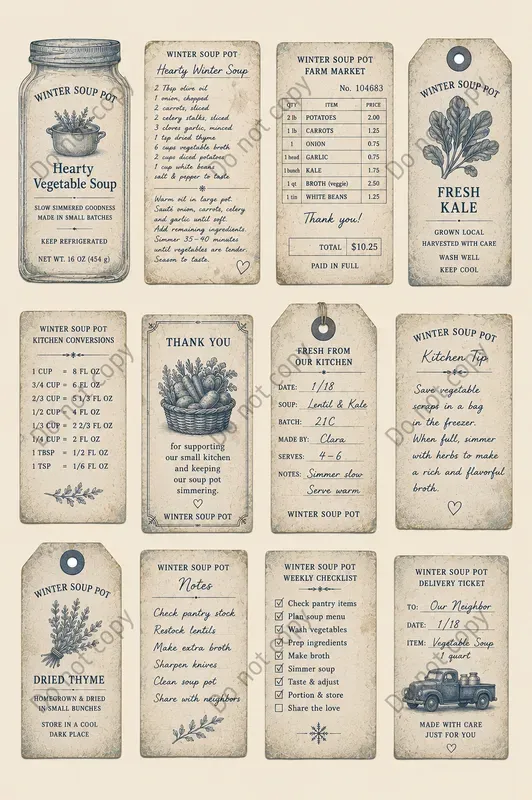 WINTER SOUP POT
Hearty
Vegetable Soup
SLOW SIMMERED GOODNESS
MADE IN SMALL BATCHES
KEEP REFRIGERATED
NET WT. 16 OZ (454 g)
WINTER SOUP POT
Hearty Winter Soup
2 Tbsp olive oil
1 onion, chopped
2 carrots, sliced
2 celery stalks, sliced
3 cloves garlic, minced
1 tsp dried thyme
6 cups vegetable broth
2 cups diced potatoes
1 cup white beans
salt & pepper to taste
Warm oil in large pot.
Sauté onion, carrots, celery
and garlic until soft.
Add remaining ingredients.
Simmer 35-40 minutes
until vegetables are tender.
Season to taste.
WINTER SOUP POT
FARM MARKET
No. 104683
QTY ITEM PRICE
2 lb POTATOES 2.00
1 lb CARROTS 1.25
1 ONION 0.75
1 head GARLIC 0.75
1 bunch KALE 1.75
1 qt BROTH (veggie) 2.50
1 tin WHITE BEANS 1.25
Thank you!
TOTAL $10.25
PAID IN FULL
WINTER SOUP POT
FRESH
KALE
GROWN LOCAL
HARVESTED WITH CARE
WASH WELL
KEEP COOL
WINTER SOUP POT
KITCHEN CONVERSIONS
1 CUP = 8 FL OZ
3/4 CUP = 6 FL OZ
2/3 CUP = 5 1/3 FL OZ
1/2 CUP = 4 FL OZ
1/3 CUP = 2 2/3 FL OZ
1/4 CUP = 2 FL OZ
1 TBSP = 1/2 FL OZ
1 TSP = 1/6 FL OZ
THANK YOU
for supporting
our small kitchen
and keeping
our soup pot
simmering.
WINTER SOUP POT
FRESH FROM
OUR KITCHEN
DATE: 1/18
SOUP: Lentil & Kale
BATCH: 21C
MADE BY: Clara
SERVES: 4-6
NOTES: Simmer slow
Serve warm
WINTER SOUP POT
WINTER SOUP POT
Kitchen Tip
Save vegetable
scraps in a bag
in the freezer.
When full, simmer
with herbs to make
a rich and flavorful
broth.
WINTER SOUP POT
DRIED THYME
HOMEGROWN & DRIED
IN SMALL BUNCHES
STORE IN A COOL
DARK PLACE
WINTER SOUP POT
Notes
Check pantry stock
Restock lentils
Make extra broth
Sharpen knives
Clean soup pot
Share with neighbors
WINTER SOUP POT
WEEKLY CHECKLIST
Check pantry items
Plan soup menu
Wash vegetables
Prep ingredients
Make broth
Simmer soup
Taste & adjust
Portion & store
Share the love
WINTER SOUP POT
DELIVERY TICKET
TO: Our Neighbor
DATE: 1/18
ITEM: Vegetable Soup
quart
MADE WITH CARE
JUST FOR YOU
Do not copy
Do not copy
Do not copy
Do not copy
Do not copy
Do not copy
Do not copy
Do not copy
Do not copy